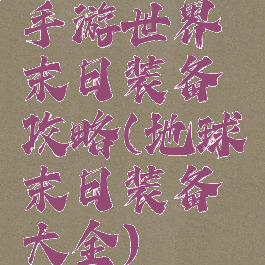 手游世界
末日装备
攻略(地球
末日装备
大全)